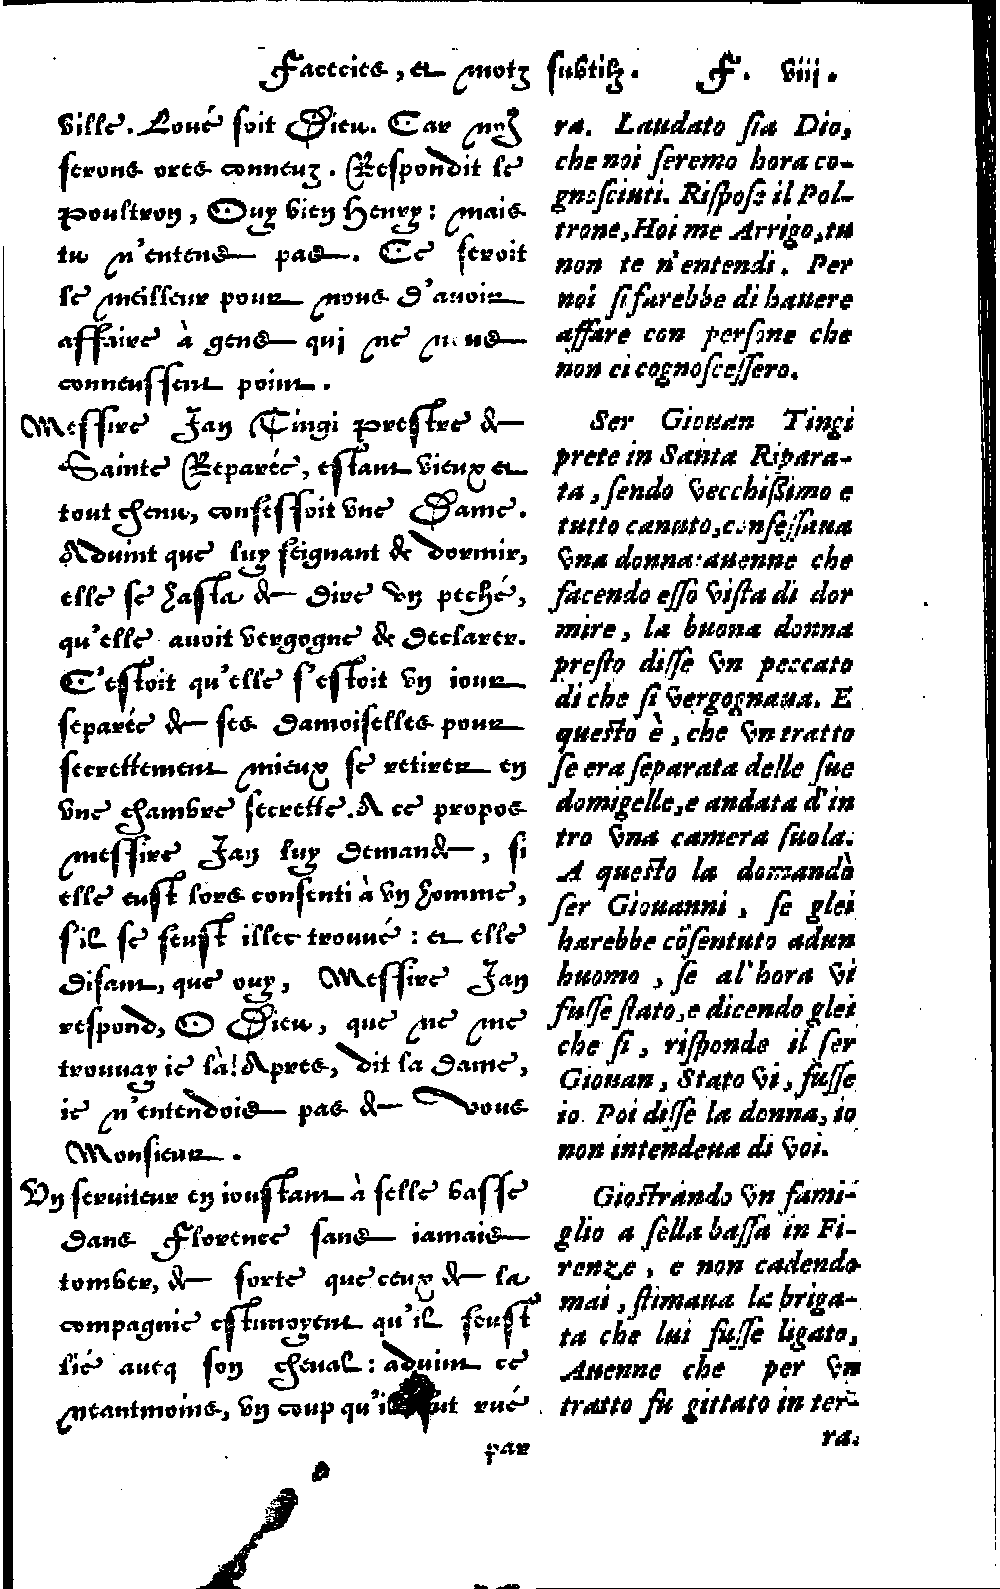 Facecies, et motz subtilz. F. viij.
ville. Loué soit Dieu. Car no9
serons ores conneuz. Respondit le
poultron, Ouy bien Henry: mais
tu n'entens pas. Ce seroit
le meilleur pour nous d'auoir
affaire à gens qui ne nous
conneussent point.
Messire Jan Tingi prestre de
Sainte Reparée, estant vieux et
tout chenu, confessoit vne Dame.
Aduint que luy feignant de dormir,
elle se hasta de dire vn peché,
qu'elle auoit vergogne de declarer.
C'estoit qu'elle s'estoit vn iour
separée de ses damoiselles pour
secrettement mieux se retirer en
vne chambre secrette. A ce propos
messire Jan luy demande, si
elle eust lors consenti à vn homme,
s'il se feust illec trouué: et elle
disant, que ouy, Messire Jan
respond, O Dieu, que ne me
trouuay ie là! Apres, dit la dame,
ie n'entendois pas de vous
Monsieur.
Vn seruiteur en ioustant à selle basse
dans Florence sans iamais
tomber, de sorte que ceux de la
compagnie estimoyent qu'il feust
lié aueq son cheual: aduint ce
neantmoins, vn coup qu'il rué
par
ra. Laudato sia Dio,
che noi seremo hora co-
gnosciuti. Rispose il Pol-
trone, Hoi me Arrigo, tu
non te n'entendi. Per
noi si farebbe di hauere
affare con persone che
non ci cognoscessero.
Ser Giouan Tingi
prete in Santa Ripara-
ta, sendo vecchissimo e
tutto canuto, confessaua
vna donna: auenne che
facendo esso vista di dor
mire, la buona donna
presto disse vn peccato
di che si vergognaua. E
questo è, che vn tratto
se era separata delle sue
domigelle, e andata d'in
tro vna camera suola.
A questo la domandò
ser Giouanni, se glei
harebbe cõsentuto adun
huomo, se al'hora vi
fusse stato, e dicendo glei
che si, risponde il ser
Giouan, Stato vi, fusse
io. Poi disse la donna, io
non intendeua di voi.
Giostrando vn fami-
glio a sella bassa in Fi-
renze, e non cadendo
mai, stimaua la briga-
ta che lui fusse ligato,
Auenne che per vn
tratto fu gittato in ter-
ra.